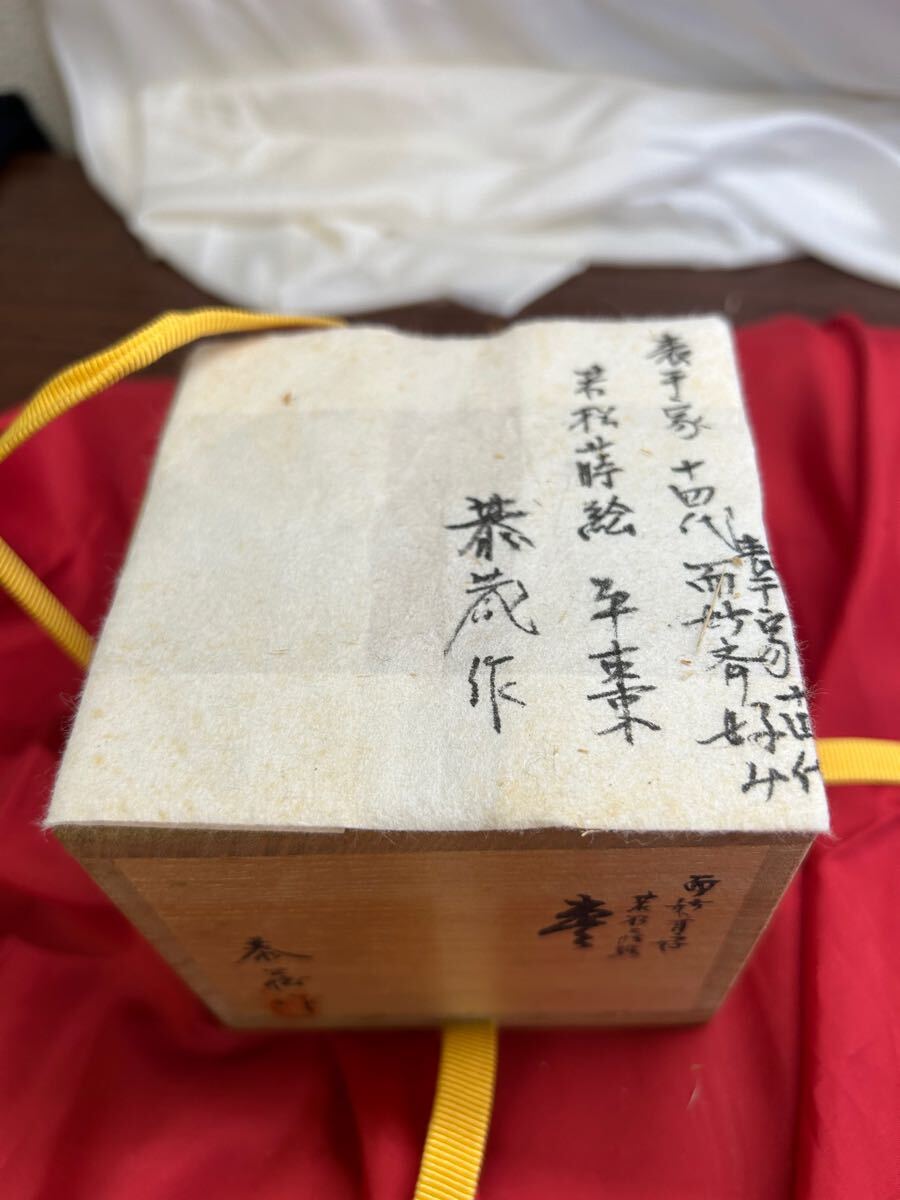 表千家 十四代 而妙斎好み
若松蒔絵 平棗
泰蔵作
表千家 十四代
而妙斎好
若松蒔絵
棗